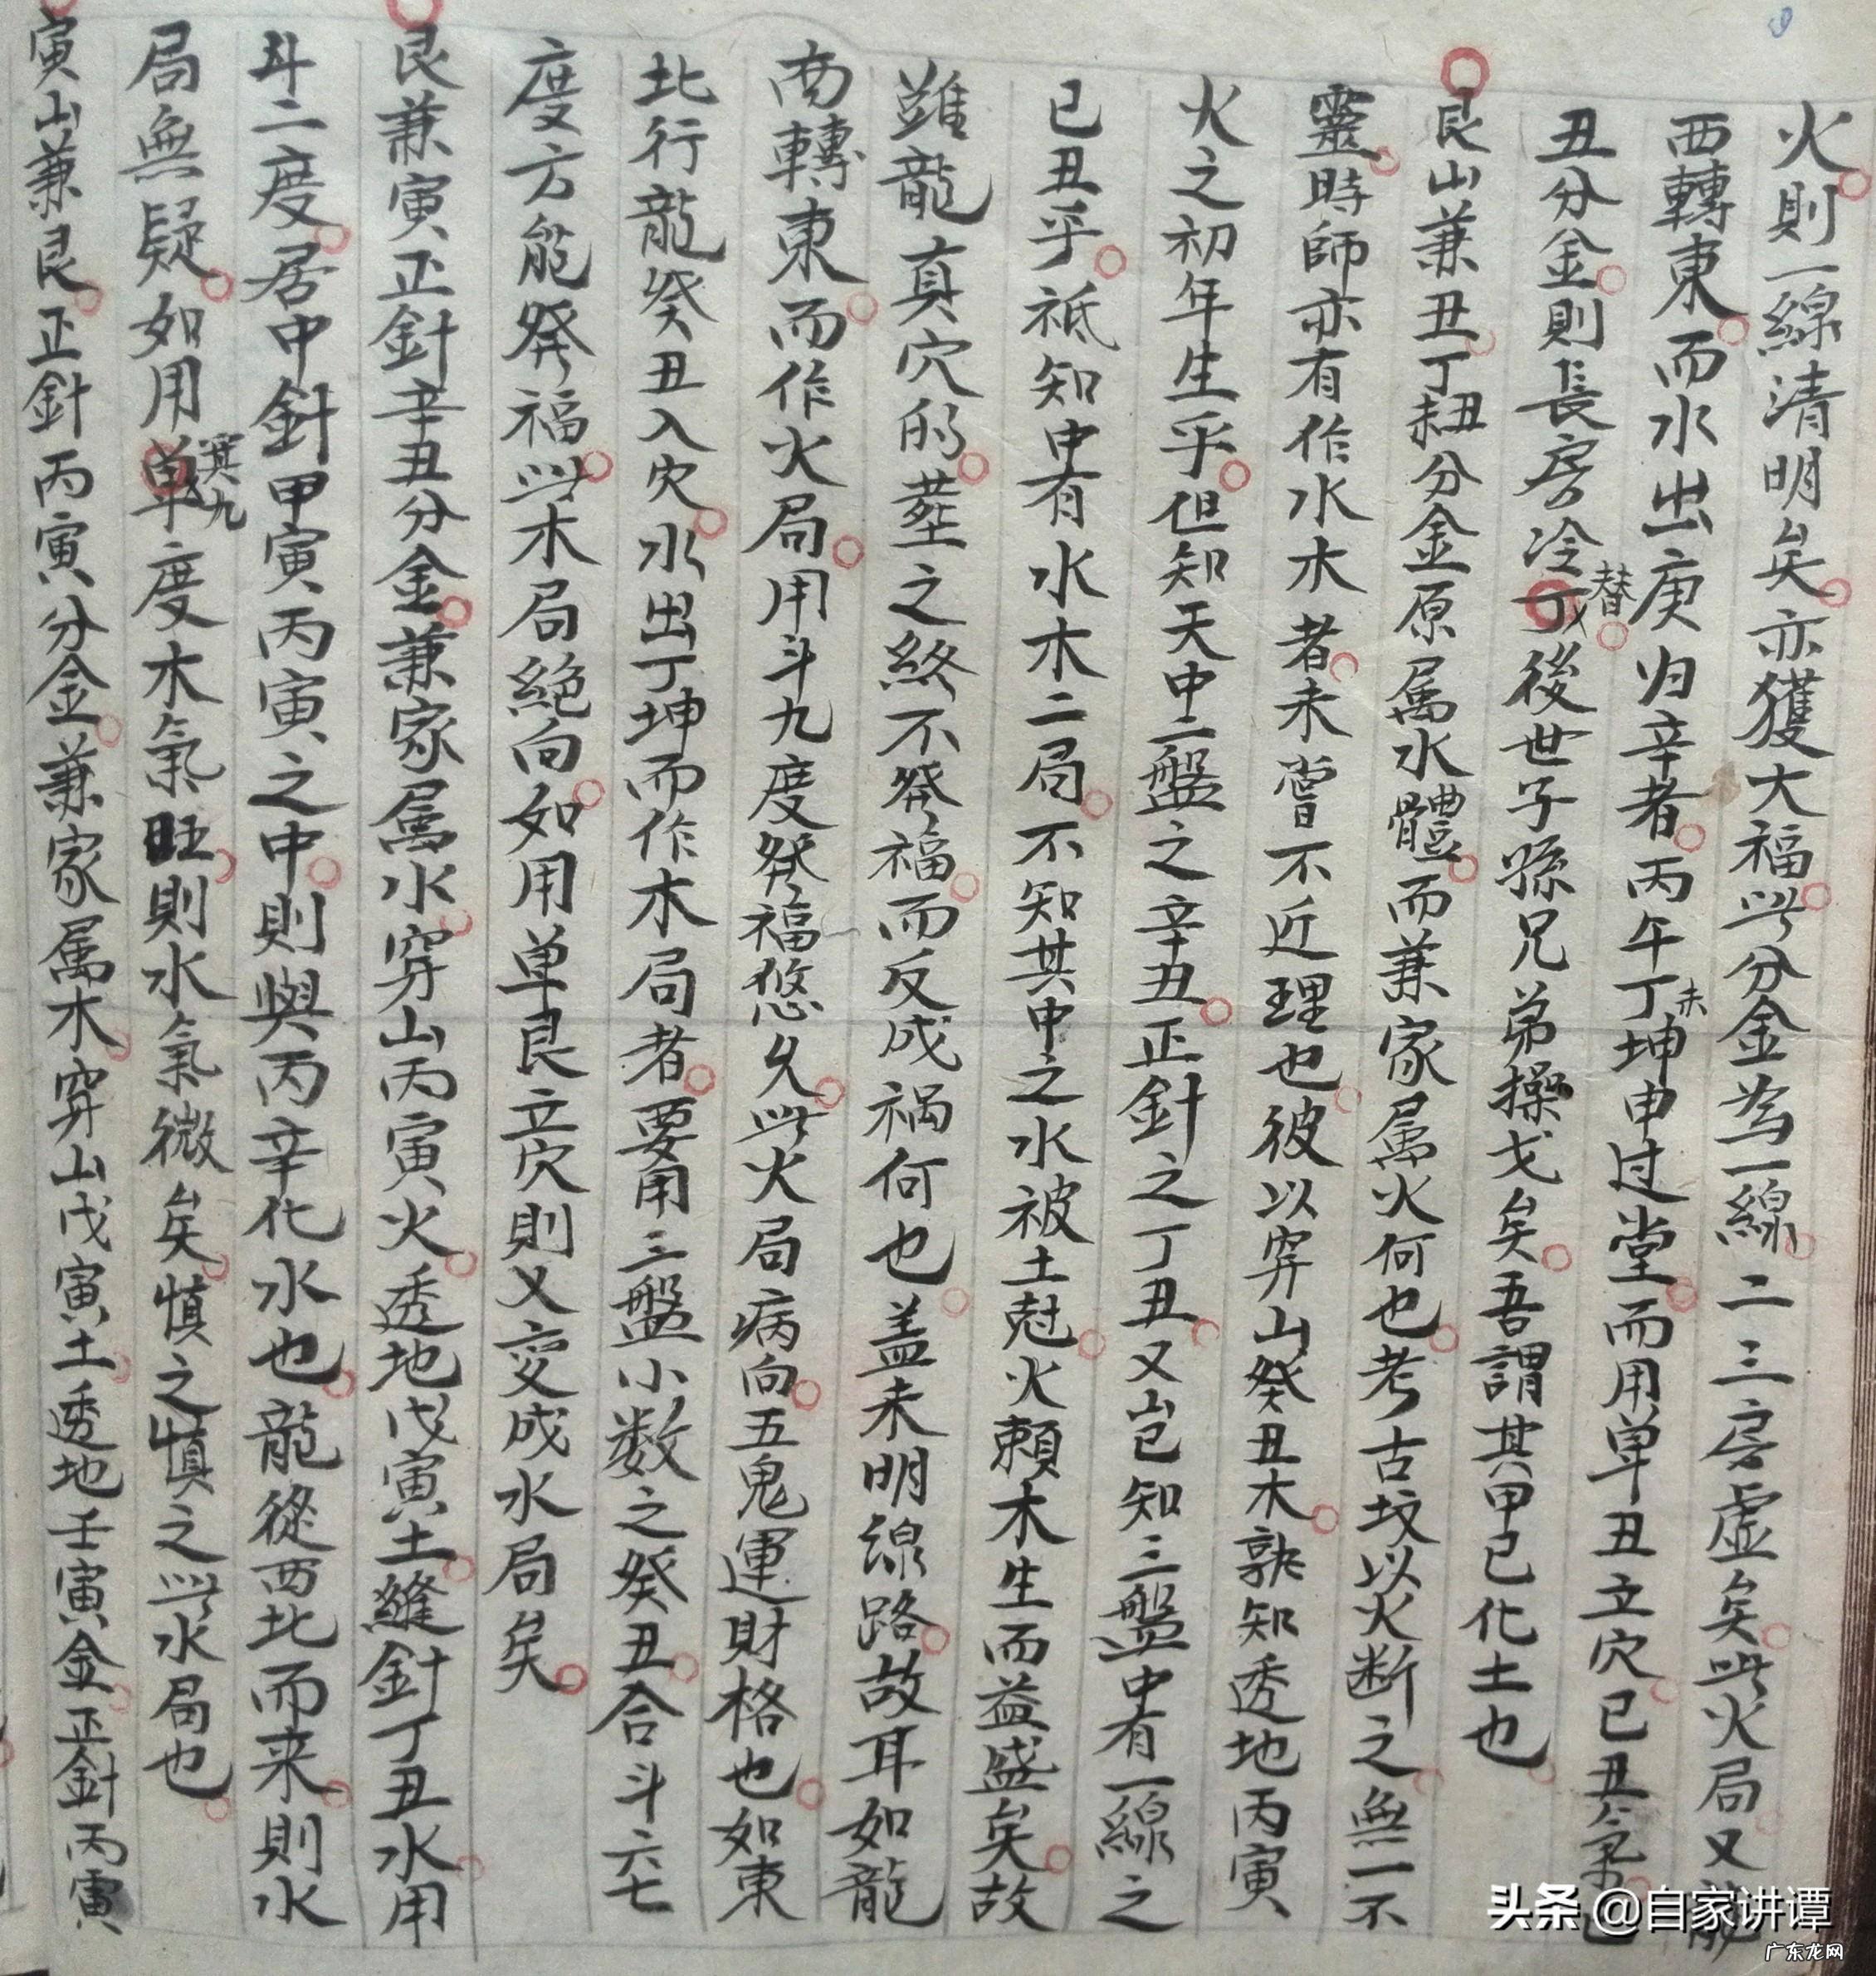 火則一線清明矣亦獲大福此分金為一線二三房虛矣此火局又
西轉東而水出庚归辛者丙午丁未坤申过堂而用单丑立穴已丑
丑分金則長房冷替後世子孫兄弟操戈矣吾謂其甲已化土也
艮山兼丑丁丑辛丑分金原属水體而兼家属火何也考古坟以火断之無一不
靈時師亦有作水木者未嘗不近理也彼以穿山癸丑木孰知透地丙寅
火之初年生乎但知天中二盤之辛丑正針之丁丑又岂知三盤中有一線之
已丑乎祗知中有水木二局不知其中之水被土尅火賴木生而益盛矣故
雖龍真穴的塟之終不發福而反成祸何也盖未明線路故耳如龍
西轉東而作火局用斗九度發福悠久此火局病向五鬼運財格也如東
北行龍癸丑入穴水出丁坤而作木局者要用三盤小数之癸丑合斗六七
度方能發福此木局絕向如用单艮立穴則又变成水局矣
艮兼寅正針辛丑分金兼家属水穿山丙寅火透地戊寅土縫針丁丑水用
斗二度居中針甲寅丙寅之中則與丙辛化水也龍從西北而来則水
局無疑如用箕九度木氣旺則水氣微矣慎之慎之此水局也
寅山兼艮正針丙寅分金兼家属木穿山戊寅土透地壬寅金正針丙寅
头条 @自家讲谭
广东龙网